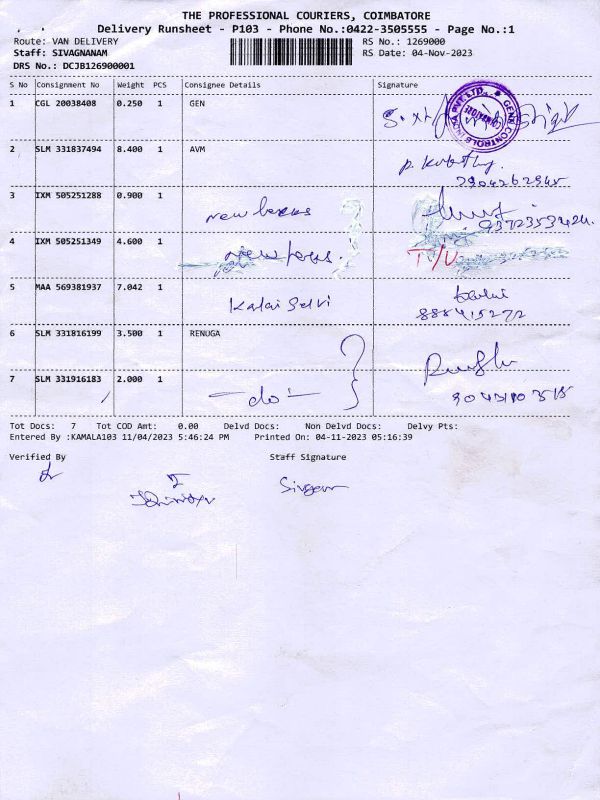 THE PROFESSIONAL COURIERS, COIMBATORE
Delivery Runsheet - P103 - Phone No.:0422-3505555 - Page No.:1
Route: VAN DELIVERY RS No.: 1269000
Staff: SIVAGNANAM RS Date: 04-Nov-2023
DRS No.: DCJB126900001
S No Consignment No Weight PCS Consignee Details Signature
1 CGL 20038408 0.250 1 GEN
2 SLM 331837494 8.400 1 AVM
7904262945
3 IXM 505251288 0.900 1 New
4 IXM 505251349 4.600 1 New T/V
5 MAA 569381937 7.042 1 Kalai Selvi
6 SLM 331816199 3.500 1 RENUGA
7 SLM 331916183 2.000 1 -do-
Tot Docs: 7 Tot COD Amt: 0.00 Delvd Docs: Non Delvd Docs: Delvy Pts:
Entered By :KAMALA103 11/04/2023 5:46:24 PM Printed On: 04-11-2023 05:16:39
Verified By Staff Signature